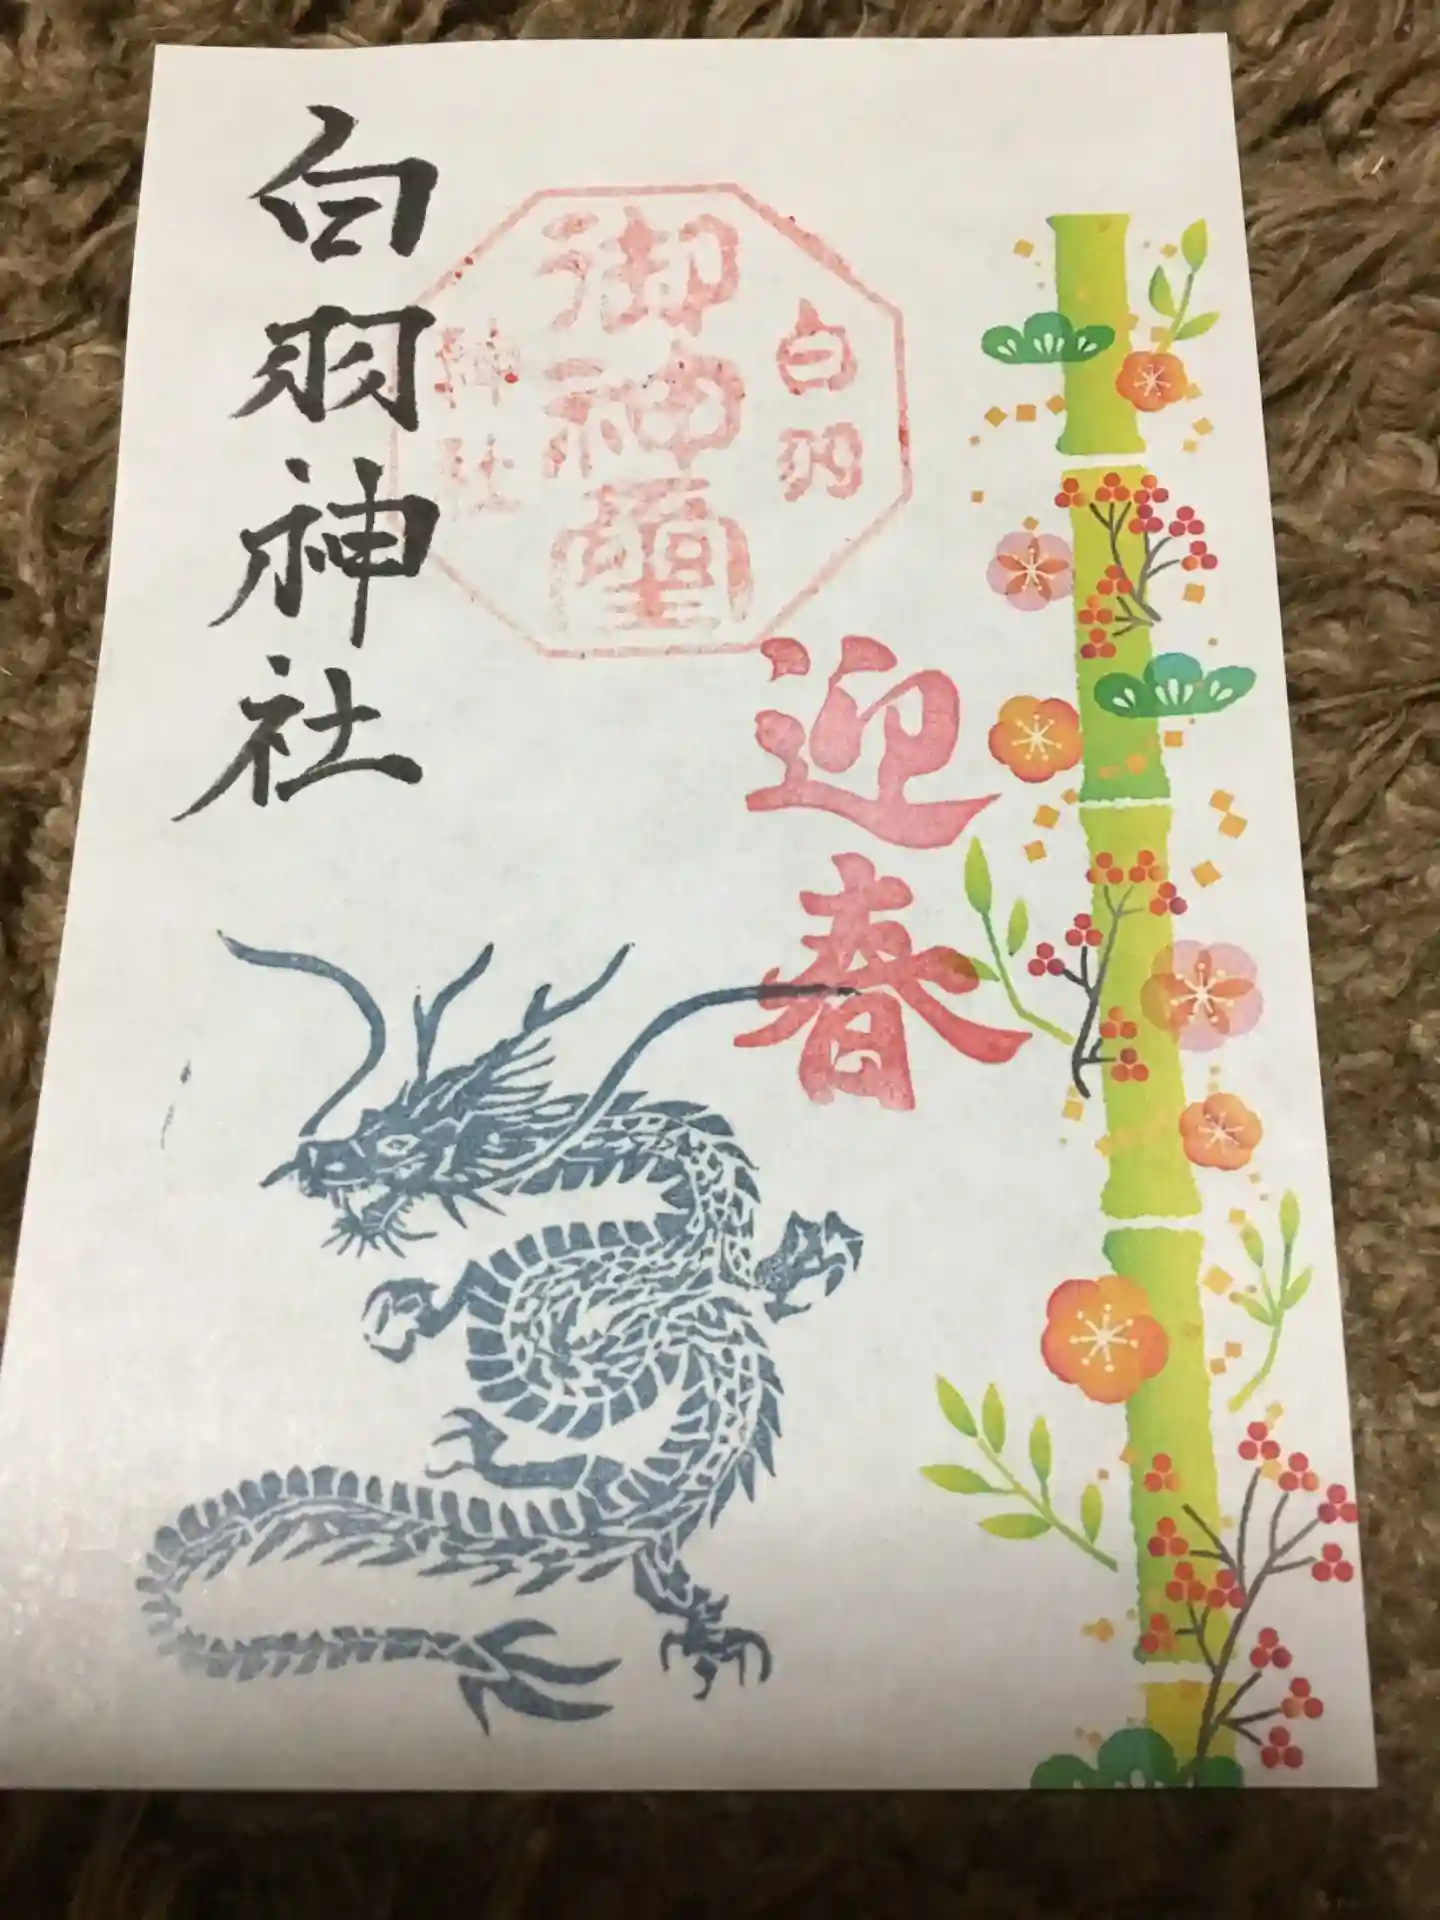 迎春
白羽
御神璽
神社
白羽神社